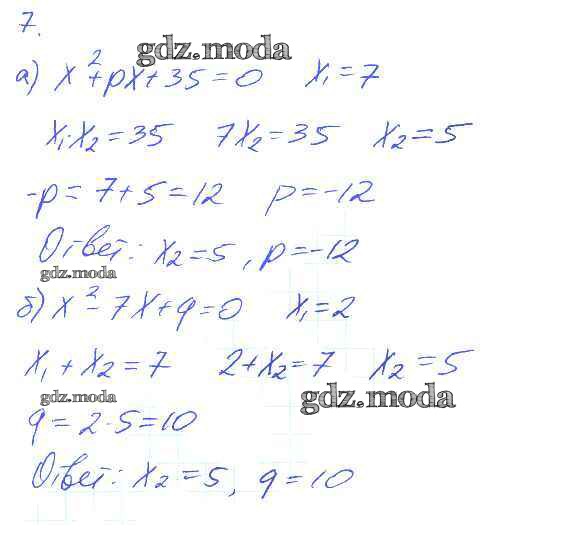 7.
gdz.moda
а) x² + px + 35 = 0 x₁ = 7
x₁·x₂ = 35 7x₂ = 35 x₂ = 5
-p = 7 + 5 = 12 p = -12
Ответ: x₂ = 5, p = -12
gdz.moda
б) x² - 7x + q = 0 x₁ = 2
x₁ + x₂ = 7 2 + x₂ = 7 x₂ = 5
gdz.moda gdz.moda
q = 2·5 = 10
Ответ: x₂ = 5, q = 10